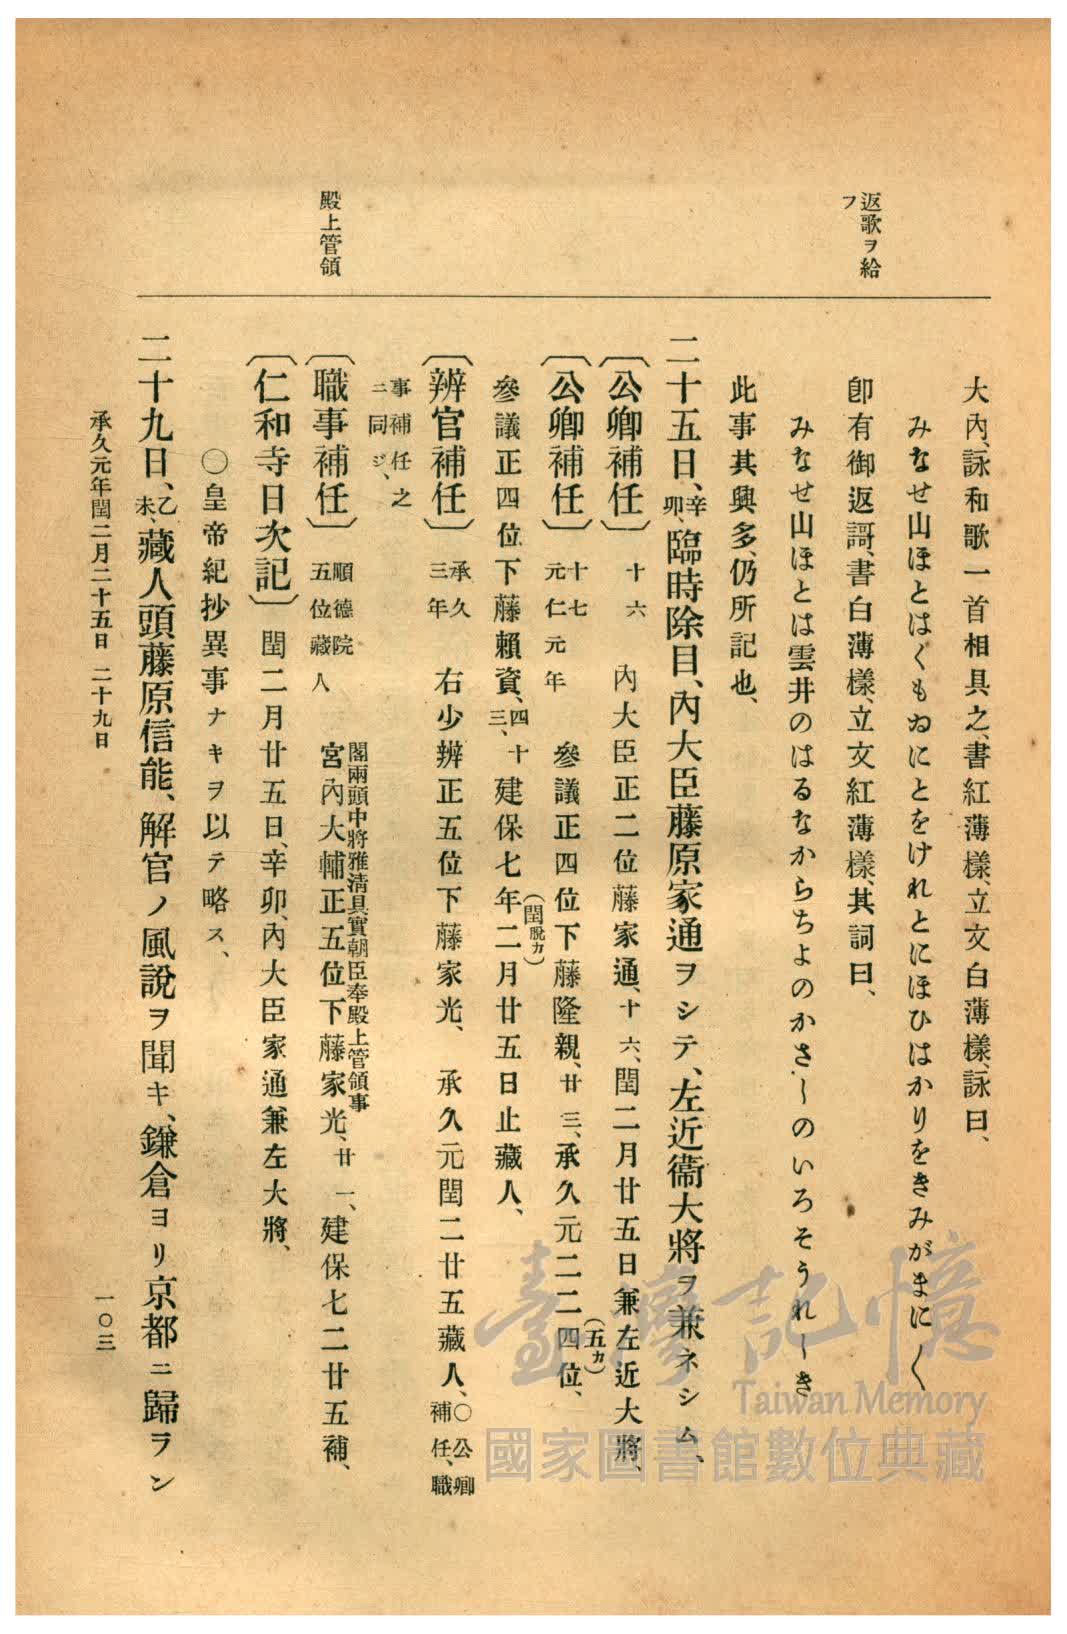 返歌ヲ給
フ
殿上管領
大內、詠和歌一首相具之、書紅薄樣、立文白薄樣、詠曰、
みなせ山ほとはくもゐにとをけれとにほひはかりをきみがまに〱
卽有御返謌、書白薄樣、立文紅薄樣、其詞曰、
みなせ山ほとは雲井のはるなからちよのかさしのいろそうれしき
此事其興多、仍所記也、
二十五日、辛卯、臨時除目、內大臣藤原家通ヲシテ、左近衞大將ヲ兼ネシム、
〔公卿補任〕十六 內大臣正二位藤家通、十六、閏二月廿五日兼左近大將、
〔公卿補任〕十七 元仁元年 參議正四位下藤隆親、廿三、承久元二二四位、(五カ)
參議正四位下藤賴資、四十三、建保七年(閏脫カ)二月廿五日止藏人、
〔辨官補任〕承久三年 右少辨正五位下藤家光、 承久元閏二廿五藏人、〇公卿補任、職
事補任之ニ同ジ、
〔職事補任〕順德院 五位藏人 宮內大輔正五位下藤家光、廿一、建保七二廿五補、
閣兩頭中將雅淸具實朝臣奉殿上管領事
〔仁和寺日次記〕閏二月廿五日、辛卯、內大臣家通兼左大將、
〇皇帝紀抄異事ナキヲ以テ略ス、
二十九日、乙未、藏人頭藤原信能、解官ノ風說ヲ聞キ、鎌倉ヨリ京都ニ歸ラン
承久元年閏二月二十五日 二十九日
一〇三
臺灣記憶
Taiwan Memory
國家圖書館數位典藏